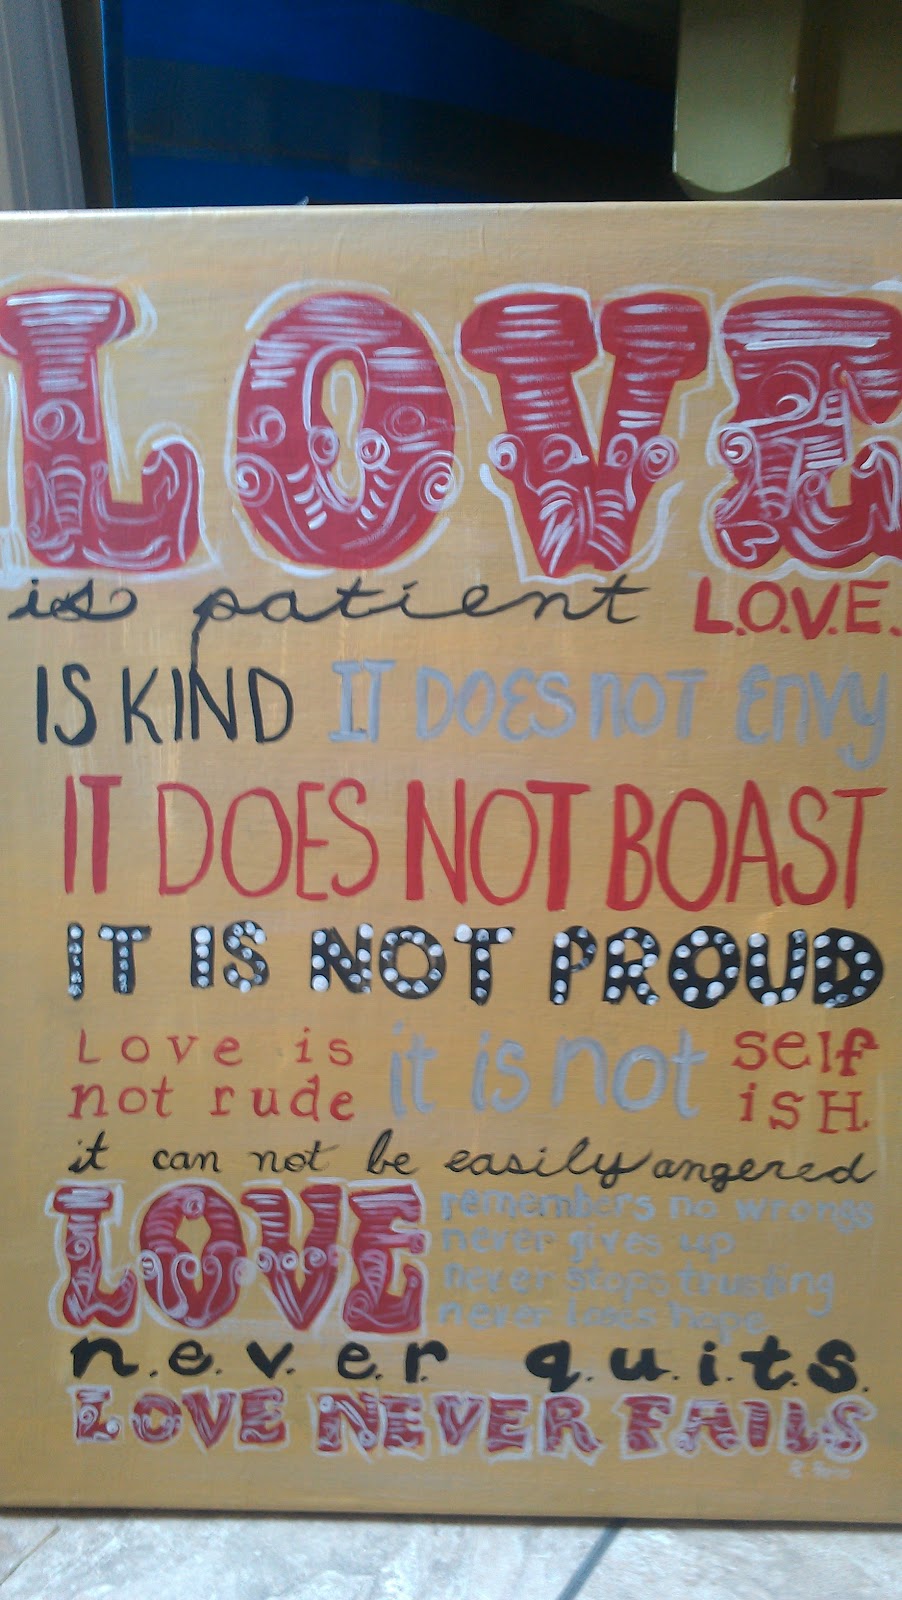 LOVE
is patient L.O.V.E.
IS KIND IT DOES NOT ENVY
IT DOES NOT BOAST
IT IS NOT PROUD
Love is
not rude
it is not
self
isH.
it can not be easily angered
LOVE
remembers no wrongs
never gives up
never stops trusting
never loses hope
n.e.v.e.r q.u.i.t.s.
LOVE NEVER FAILS